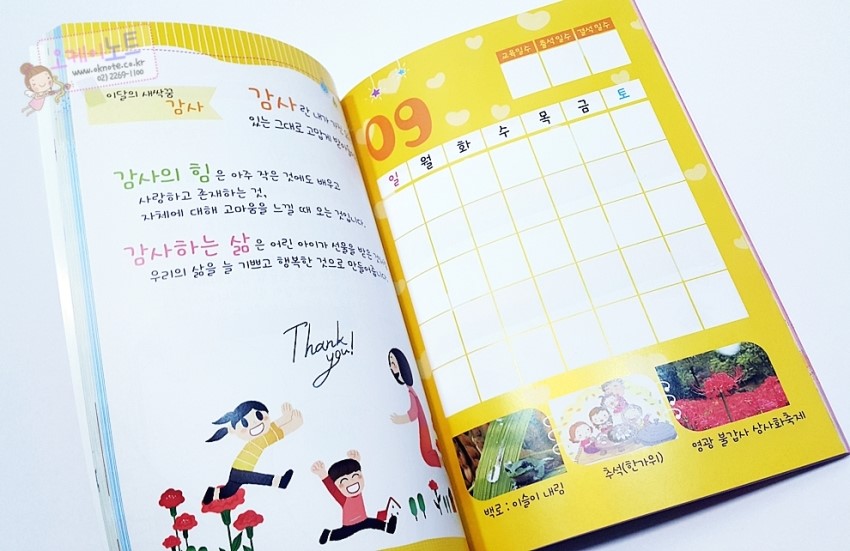 오케이노트
www.oknote.co.kr
02) 2269-1100
이달의 새싹꿈
감사
감사란 내가
있는 그대로 고맙게
감사의 힘은 아주 작은 것에도 배우고
사랑하고 존재하는 것,
자체에 대해 고마움을 느낄 때 오는 것입니다.
감사하는 삶은 어린 아이가 선물을 받은
우리의 삶을 늘 기쁘고 행복한 것으로 만들어줍니다
Thank
you!
교육일수 출석일수 결석일수
09
일 월 화 수 목 금 토
백로 : 이슬이 내림
추석(한가위)
영광 불갑사 상사화축제